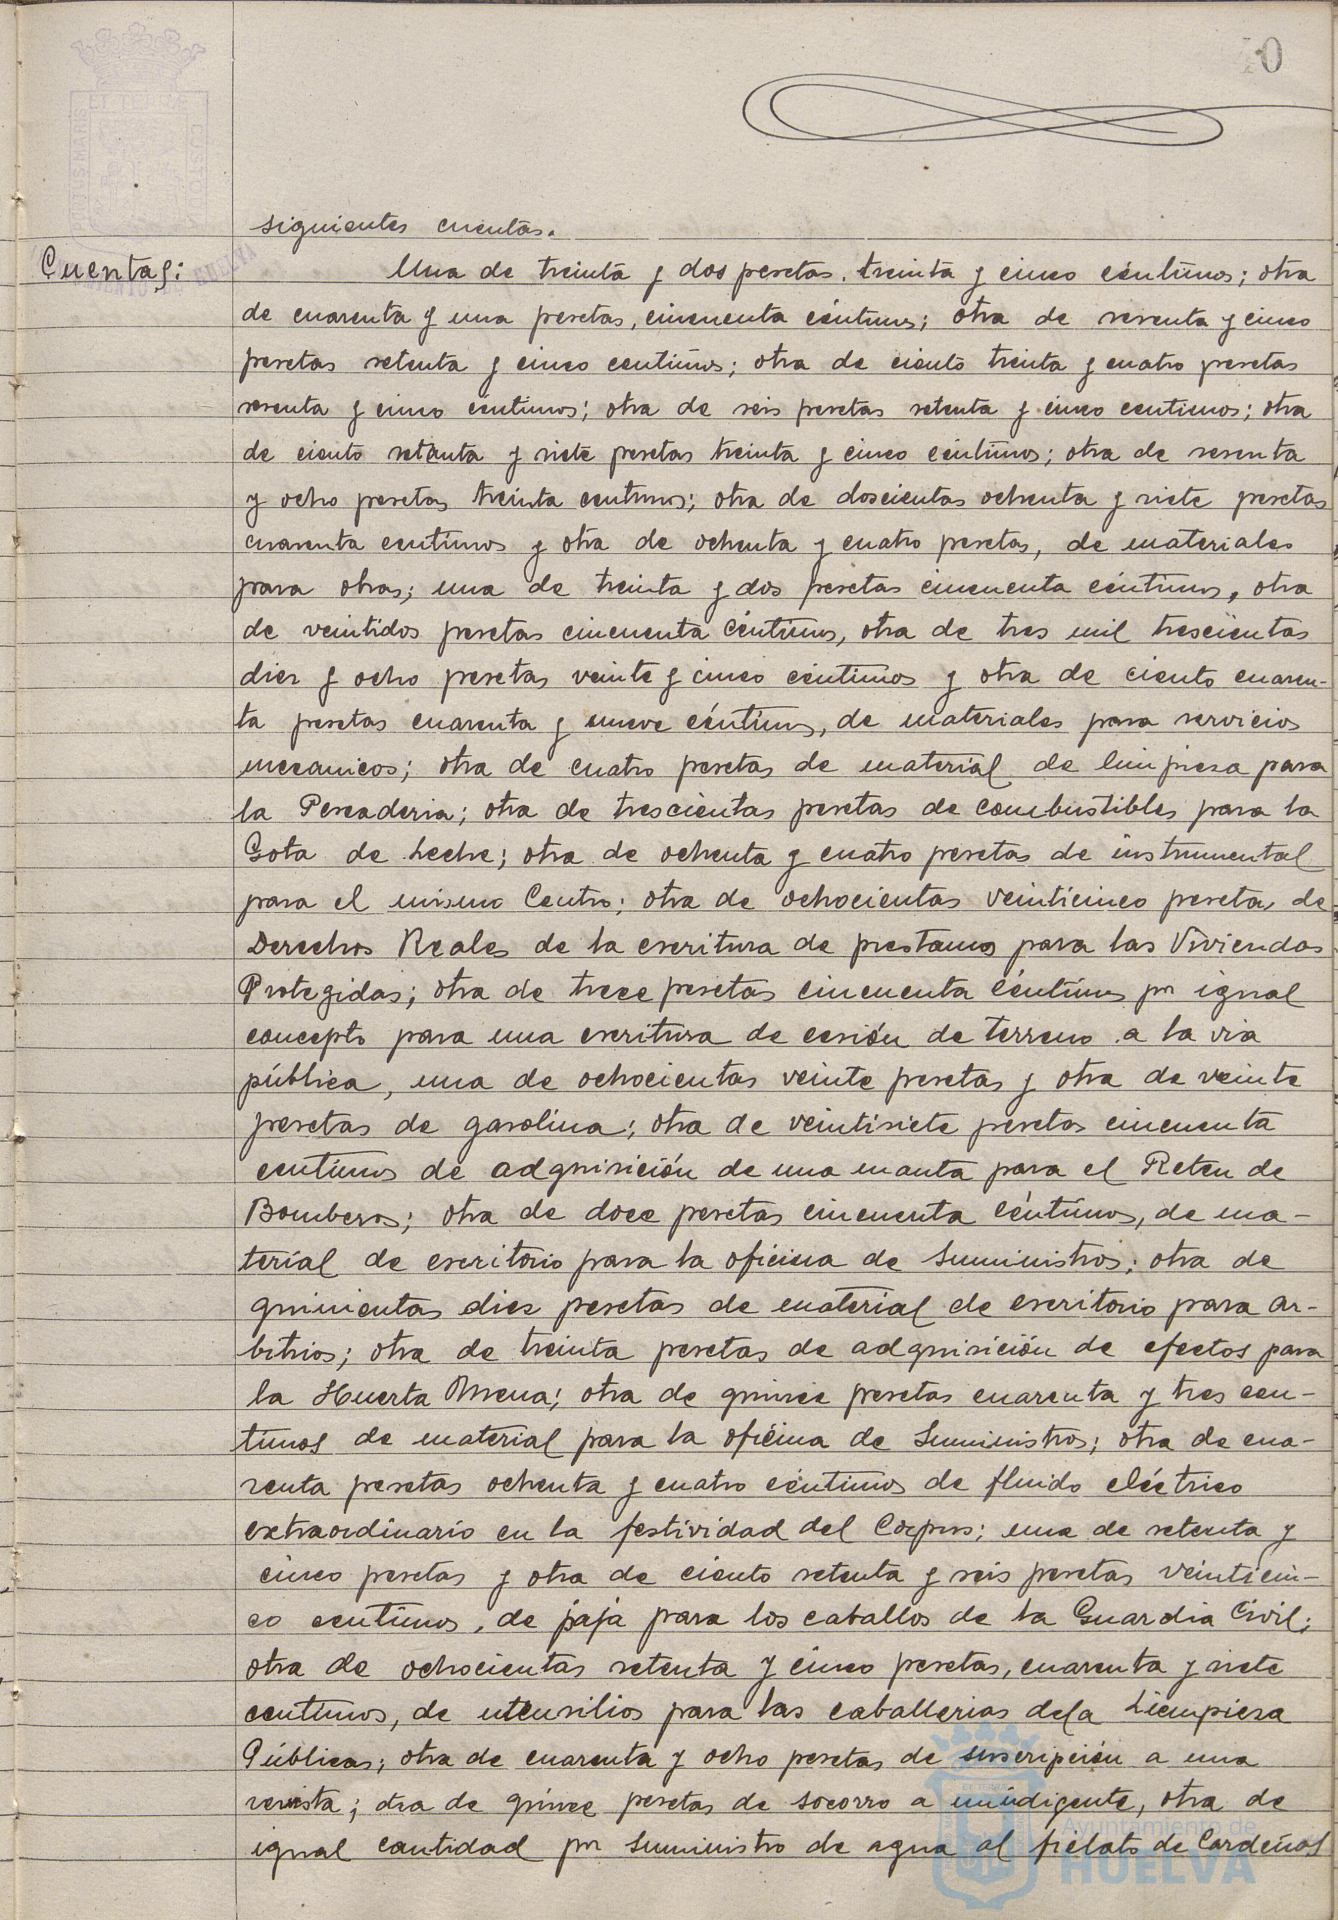 40
PORTUS MARIS
ET TERRE
CUSTODIA
siguientes cuentas.
Cuentas:
Una de treinta y dos pesetas, treinta y cinco céntimos; otra
de cuarenta y una pesetas, cincuenta céntimos; otra de sesenta y cinco
pesetas setenta y cinco centimos; otra de ciento treinta y cuatro pesetas
sesenta y cinco céntimos; otra de seis pesetas setenta y cinco centimos; otra
de ciento setenta y siete pesetas treinta y cinco céntimos; otra de sesenta
y ocho pesetas treinta centimos; otra de doscientas ochenta y siete pesetas
cuarenta centimos y otra de ochenta y cuatro pesetas, de materiales
para obras; una de treinta y dos pesetas cincuenta céntimos, otra
de veintidos pesetas cincuenta céntimos, otra de tres mil trescientas
diez y ocho pesetas veinte y cinco céntimos y otra de ciento cuaren-
ta pesetas cuarenta y nueve céntimos, de materiales para servicios
mecanicos; otra de cuatro pesetas de material de limpieza para
la Pescaderia; otra de trescientas pesetas de combustibles para la
Gota de Leche; otra de ochenta y cuatro pesetas de instrumental
para el mismo Centro; otra de ochocientas veinticinco pesetas de
Derechos Reales de la escritura de prestamo para las Viviendas
Protegidas; otra de trece pesetas cincuenta céntimos por igual
concepto para una escritura de cesión de terreno a la via
pública, una de ochocientas veinte pesetas y otra de veinte
pesetas de gasolina; otra de veintisiete pesetas cincuenta
centimos de adquisición de una manta para el Reten de
Bomberos; otra de doce pesetas cincuenta céntimos, de ma-
terial de escritorio para la oficina de Suministros; otra de
quinientas diez pesetas de material de escritorio para ar-
bitrios; otra de treinta pesetas de adquisición de efectos para
la Huerta Mena; otra de quince pesetas cuarenta y tres cen-
timos de material para la oficina de Suministros; otra de cua-
renta pesetas ochenta y cuatro céntimos de fluido eléctrico
extraordinario en la festividad del Corpus; una de setenta y
cinco pesetas y otra de ciento setenta y seis pesetas veinticin-
co centimos, de paja para los caballos de la Guardia Civil;
otra de ochocientas setenta y cinco pesetas, cuarenta y siete
centimos, de utensilios para las caballerias de la Liempieza
Públicas; otra de cuarenta y ocho pesetas de suscripción a una
revista; otra de quince pesetas de socorro a un indigente, otra de
igual cantidad por suministro de agua al fielato de Cardeñas
Ayuntamiento de
HUELVA